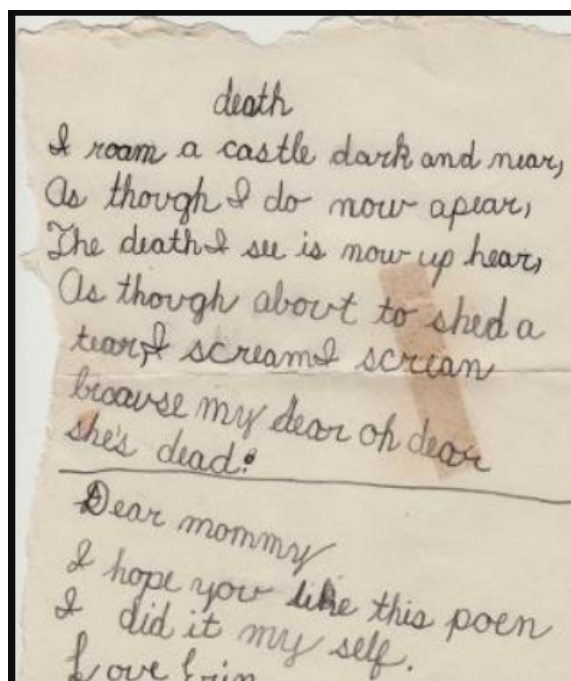 death
I roam a castle dark and near,
As though I do now apear,
The death I see is now up hear,
As though about to shed a
tear, I scream I screian
because my dear oh dear
she's dead.
Dear mommy
I hope you like this poem
I did it my self.
Love Erin